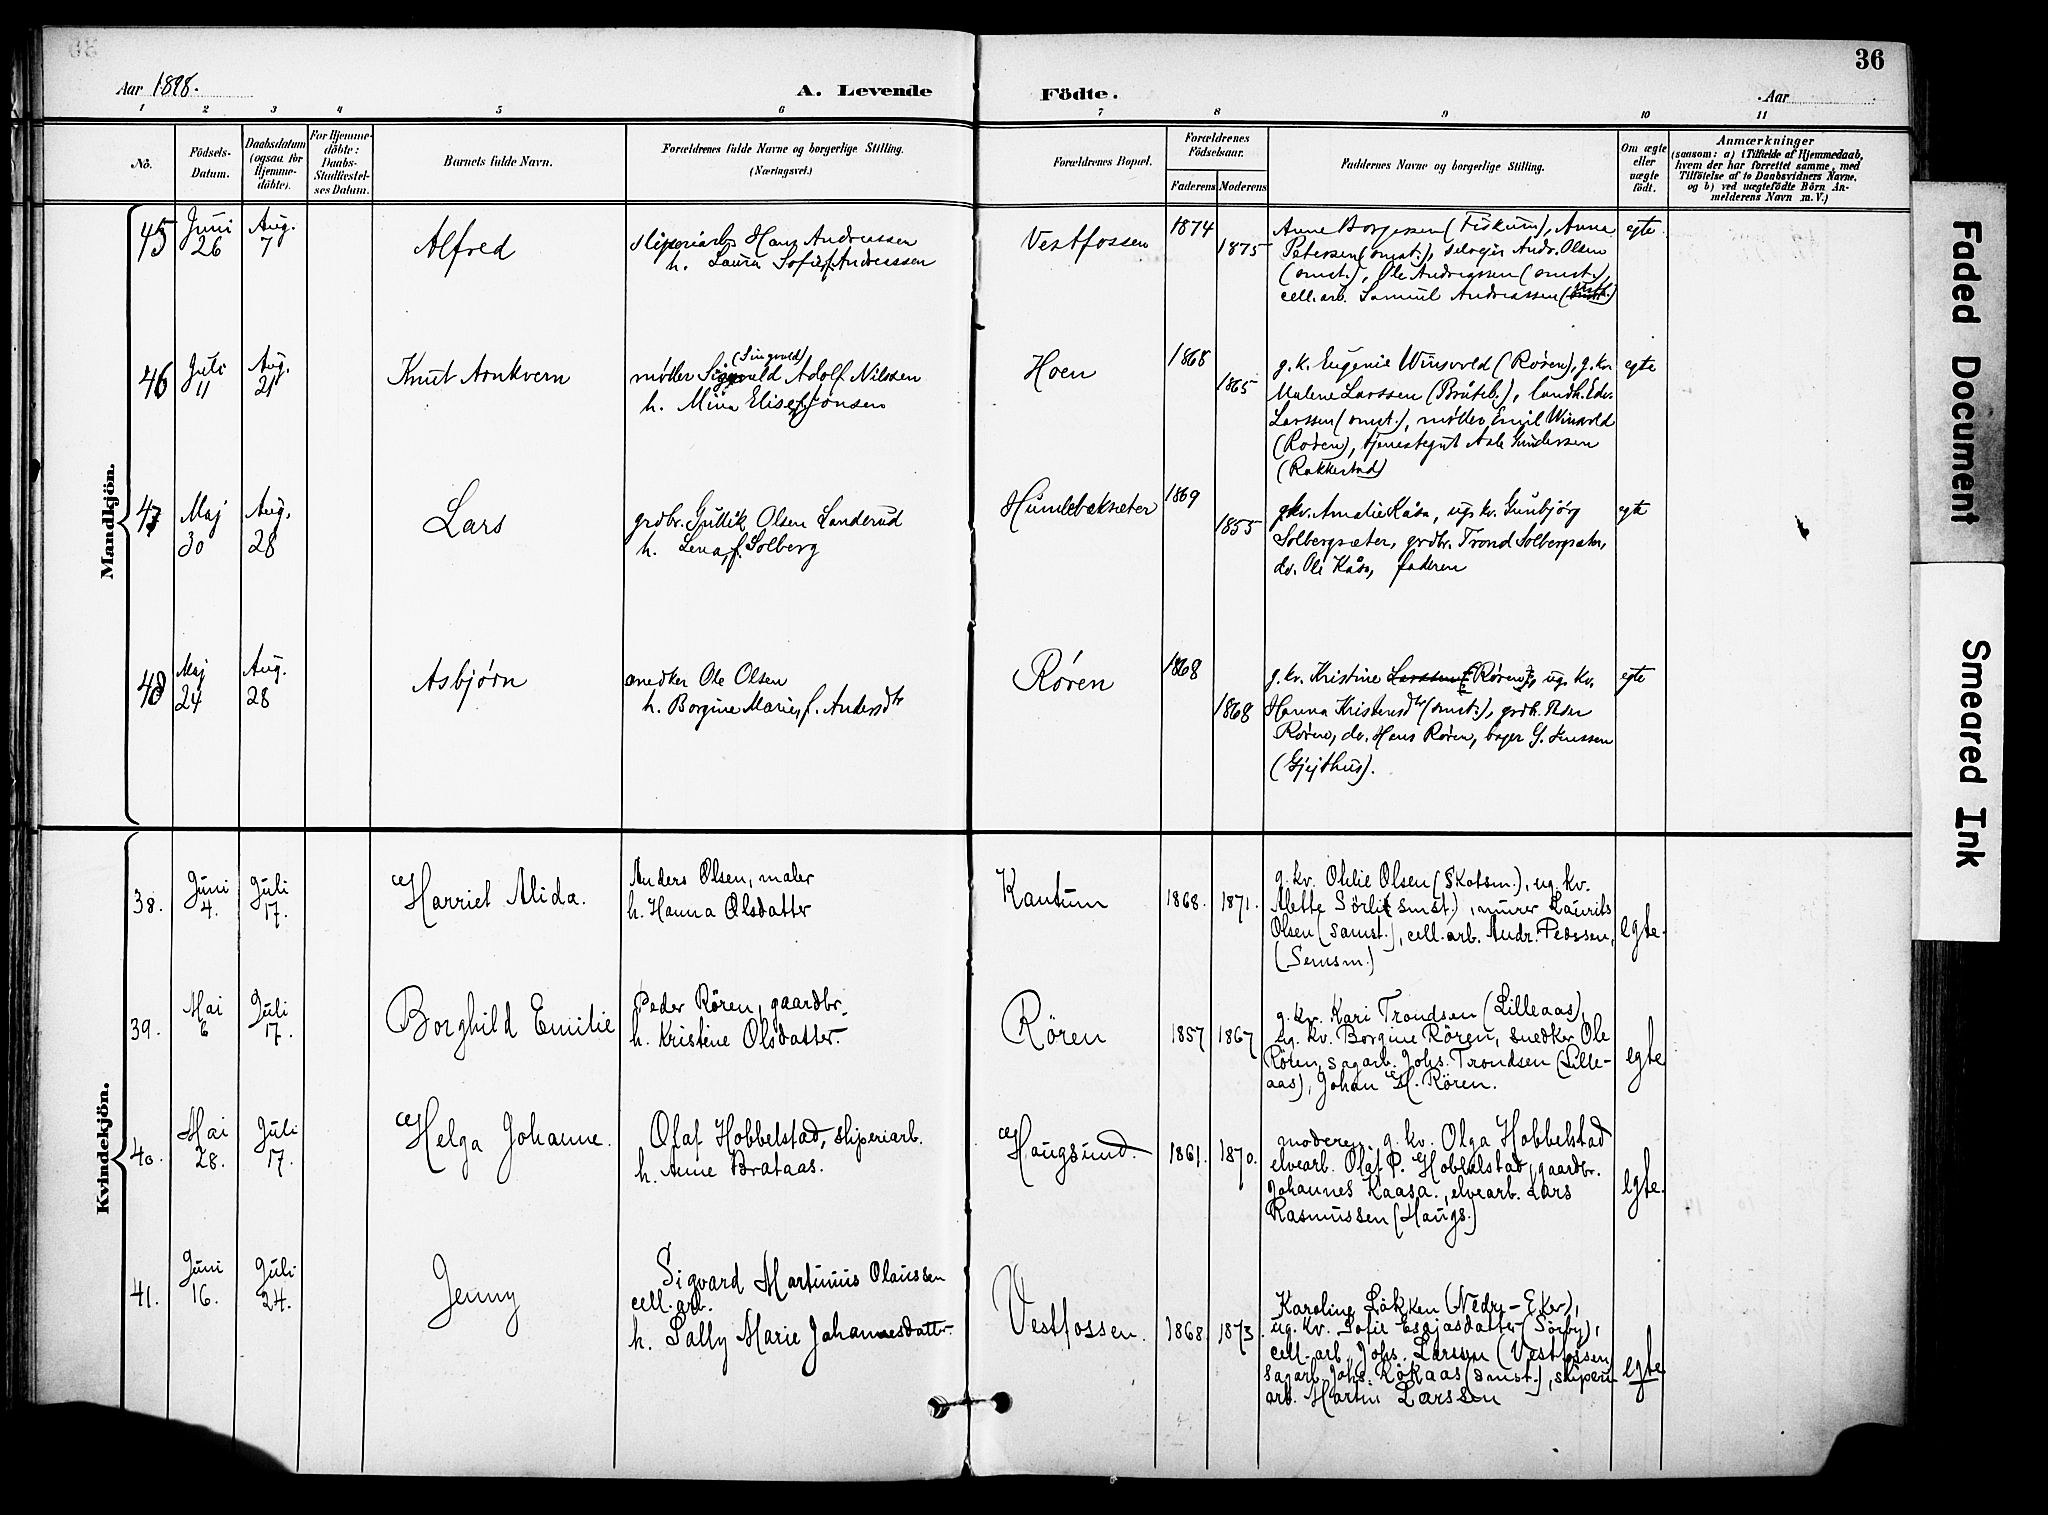 36
Aar 1898.
A. Levende Födte.
Aar
1 2 3 4 5 6 7 8 9 10 11
No.
Födsels-Datum.
Daabsdatum (ogsaa for Hjemme-döbte).
For Hjemme-döbte: Daabs-Stadfæstel-ses Datum.
Barnets fulde Navn.
Forældrenes fulde Navne og borgerlige Stilling.
(Næringsvei.)
Forældrenes Bopæl.
Forældrenes Födselsaar.
Faderens Moderens
Faddernes Navne og borgerlige Stilling.
Om ægte eller uægte födt.
Anmærkninger
(saasom: a) i Tilfælde af Hjemmedaab,
hvem der har forrettet samme, med
Tilföielse af to Daabsvidners Navne,
og b) ved uægtefödte Börn An-
melderens Navn m. V.)
Mandkjön.
45 Juni 26 Aug. 7 Alfred
sliperiarb. Hans Andreassen
h. Laura Sofie f. Andreassen
Vestfossen 1874 1875
Anne Borgersen (Fiskum), Anna
Petersen (smst.), selvejer Andr. Olsen
(smst.), Ole Andreassen (smst.),
cell. arb. Samuel Andreassen (Vestf.)
egte.
46 Juli 11 Aug. 21 Knut Arnkvern
(Singvald)
møller Sigvald Adolf Nilssen
h. Mina Elise f. Jonsen
Hoen 1868 1865
g. k. Eugenie Winsvold (Røren), g. kv.
Malene Larssen (Bråteb.), landh. Edv.
Larssen (smst.), møller Emil Winsvold
(Røren), tjenestegut Asle Gundersen
(Rakkestad)
egte
47 Maj 30 Aug. 28 Lars
grdbr. Gullik Olsen Landerud
h. Lena, f. Solberg
Humlebæksæter 1869 1855
gkv. Amalie Kåsa, ug. kv. Gunbjørg
Solbergsæter, grdbr. Trond Solbergsæter,
do. Ole Kåsa, faderen
egte
48 Maj 24 Aug. 28 Asbjørn
snedker Ole Olsen
h. Borgine Marie, f. Andersdtr
Røren 1868 1868
g. kv. Kristine Larssen (Røren), ug. kv.
Hanna Kristensdtr (smst.), grdb. Peder
Røren, do. Hans Røren, bager G. Jenssen
(Gjejthus).
egte
Kvindekjön.
38. Juni 4. Juli 17. Harriet Alida.
Anders Olsen, maler
h. Hanna Olsdatter
Kantum 1868. 1871.
g. kv. Ohlie Olsen (Skotsm.), ug. kv.
Alette Sörli (smst.), murer Laurits
Olsen (samst.), cell. arb. Andr. Pedssen,
(Semsm.)
egte.
39. Mai 6 Juli 17. Borghild Emilie
Peder Rören, gaardbr.
h. Kristine Olsdatter.
Rören 1857 1867
g. kv. Kari Trondsen (Lilleaas),
ug. kv. Borgine Rören, snedker Ole
Rören, sagarb. Johs. Trondsen (Lille-
aas), Johan H. Rören.
egte
40. Mai 28. Juli 17. Helga Johanne.
Olaf Hobbelstad, sliperiarb.
h. Anne Brataas.
Haugsund. 1861. 1870.
moderen, g. kv. Olga Hobbelstad
elvearb. Olaf P. Hobbelstad, gaardbr.
Johannes Kaasa., elvearb. Lars
Rasmussen (Haugs.)
egte.
41. Juni 16. Juli 24. Jenny
Sigvard Martinius Olaussen
cell. arb.
h. Sally Marie Johannesdatter.
Vestfossen. 1868 1873.
Karoline Lökken (Nedre-Eker),
ug. kv. Sofie Esajasdatter (Sörby),
cell. arb. Johs. Larssen (Vestfossen)
sagarb. Johs. Rökaas (smst.), sliperi-
arb. Martin Larssen
egte
Faded Document
Smeared Ink